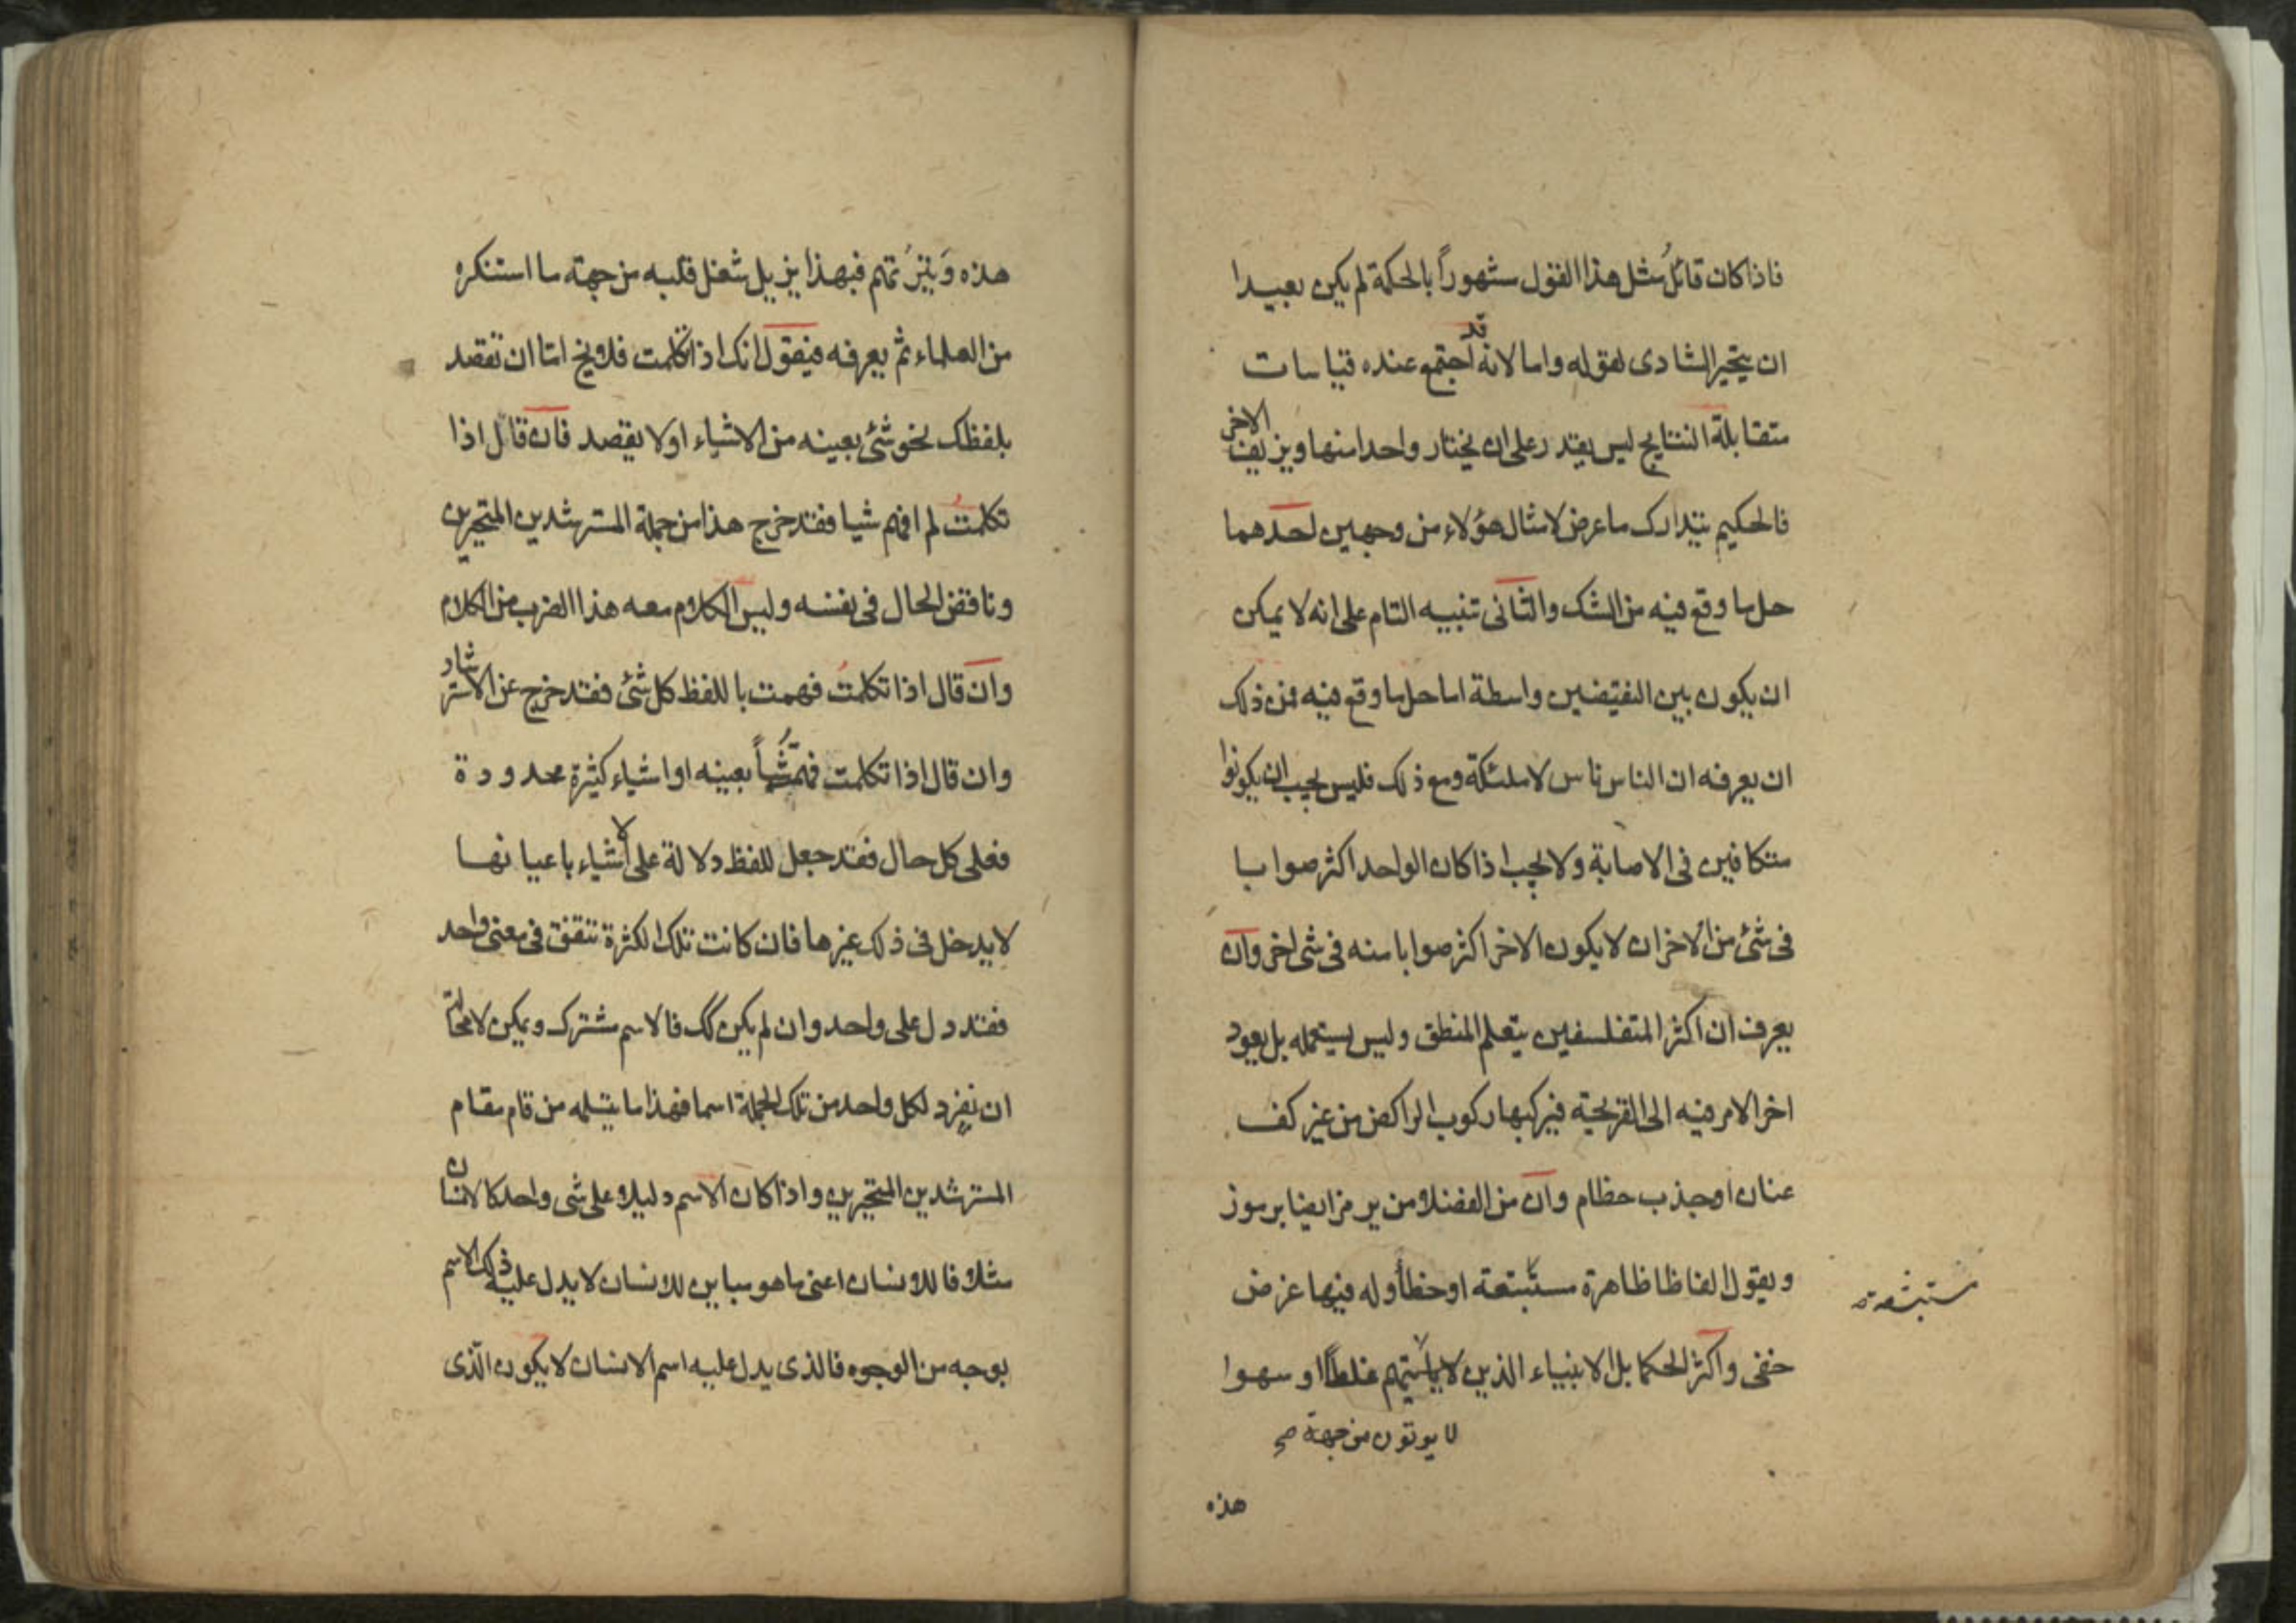 فاذا كان قائلُ مثل هذا القول مشهوراً بالحكمة لم يكن بعيدا
ان يتحير الشادى لقوله واما لانه قد اجتمع عنده قياسات
متقابلة النتايج ليس يقدر على ان يختار واحدا منها ويزيف الاخر
فالحكيم يتدارك ما عرض لامثال هؤلاء من وجهين احدهما
حل ما وقع فيه من الشك والثانى تنبيه التام على انه لا يمكن
ان يكون بين النقيضين واسطة اما حل ما وقع فيه فمن ذلك
ان يعرفه ان الناس ناس لا ملئكة ومع ذلك فليس يجب ان يكونوا
متكافين فى الاصابة ولا يجب اذا كان الواحد اكثر صوابا
فى شئ من الاخر ان لا يكون الاخر اكثر صوابا منه فى شى اخر وان
يعرف ان اكثر المتفلسفين يتعلم المنطق وليس يستعمله بل يعود
اخر الامر فيه الى القريحة فيركبها ركوب الراكض من غير كف
عنان او جذب حظام وان من الفضلا من يرمز ايضا برموز
ويقول الفاظا ظاهرة مستبشعة او خطأ وله فيها غرض
مستبشعة
خفى واكثر الحكما بل الانبياء الذين لا يأتيهم غلطاً او سهوا
لا يوتون من جهة صح
هذه
هذه وتيرتهم فبهذا يزيل شغل قلبه من جهة ما استنكره
من العلماء ثم يعرفه فيقول انك اذا تكلمت فلا يخ اما ان تقصد
بلفظك نحو شئ بعينه من الاشياء او لا يقصد فان قال اذا
تكلمتُ لم افهم شيا فقد خرج هذا من جملة المسترشدين المتحيرين
وناقض الحال فى نفسه وليس الكلام معه هذا الضرب من الكلام
وان قال اذا تكلمتُ فهمت باللفظ كل شئ فقد خرج عن الاسترشاد
وان قال اذا تكلمت فهمت شيأً بعينه او اشياء كثيرة محدودة
فعلى كل حال فقد جعل للفظ دلالة على الاشياء باعيانها
لا يدخل فى ذلك غيرها فان كانت تلك الكثرة تتفق فى معنى واحد
فقد دل على واحد وان لم يكن كك فالاسم مشترك ويمكن لا محالة
ان يفرد لكل واحد من تلك الجملة اسما فهذا ما يتسلمه من قام مقام
المسترشدين المتحيرين واذا كان الاسم دليلا على شى واحد كالانسان
مثلا فاللاانسان اعنى ما هو مباين للانسان لا يدل عليه ذلك الاسم
بوجه من الوجوه فالذى يدل عليه اسم الانسان لا يكون الّذى